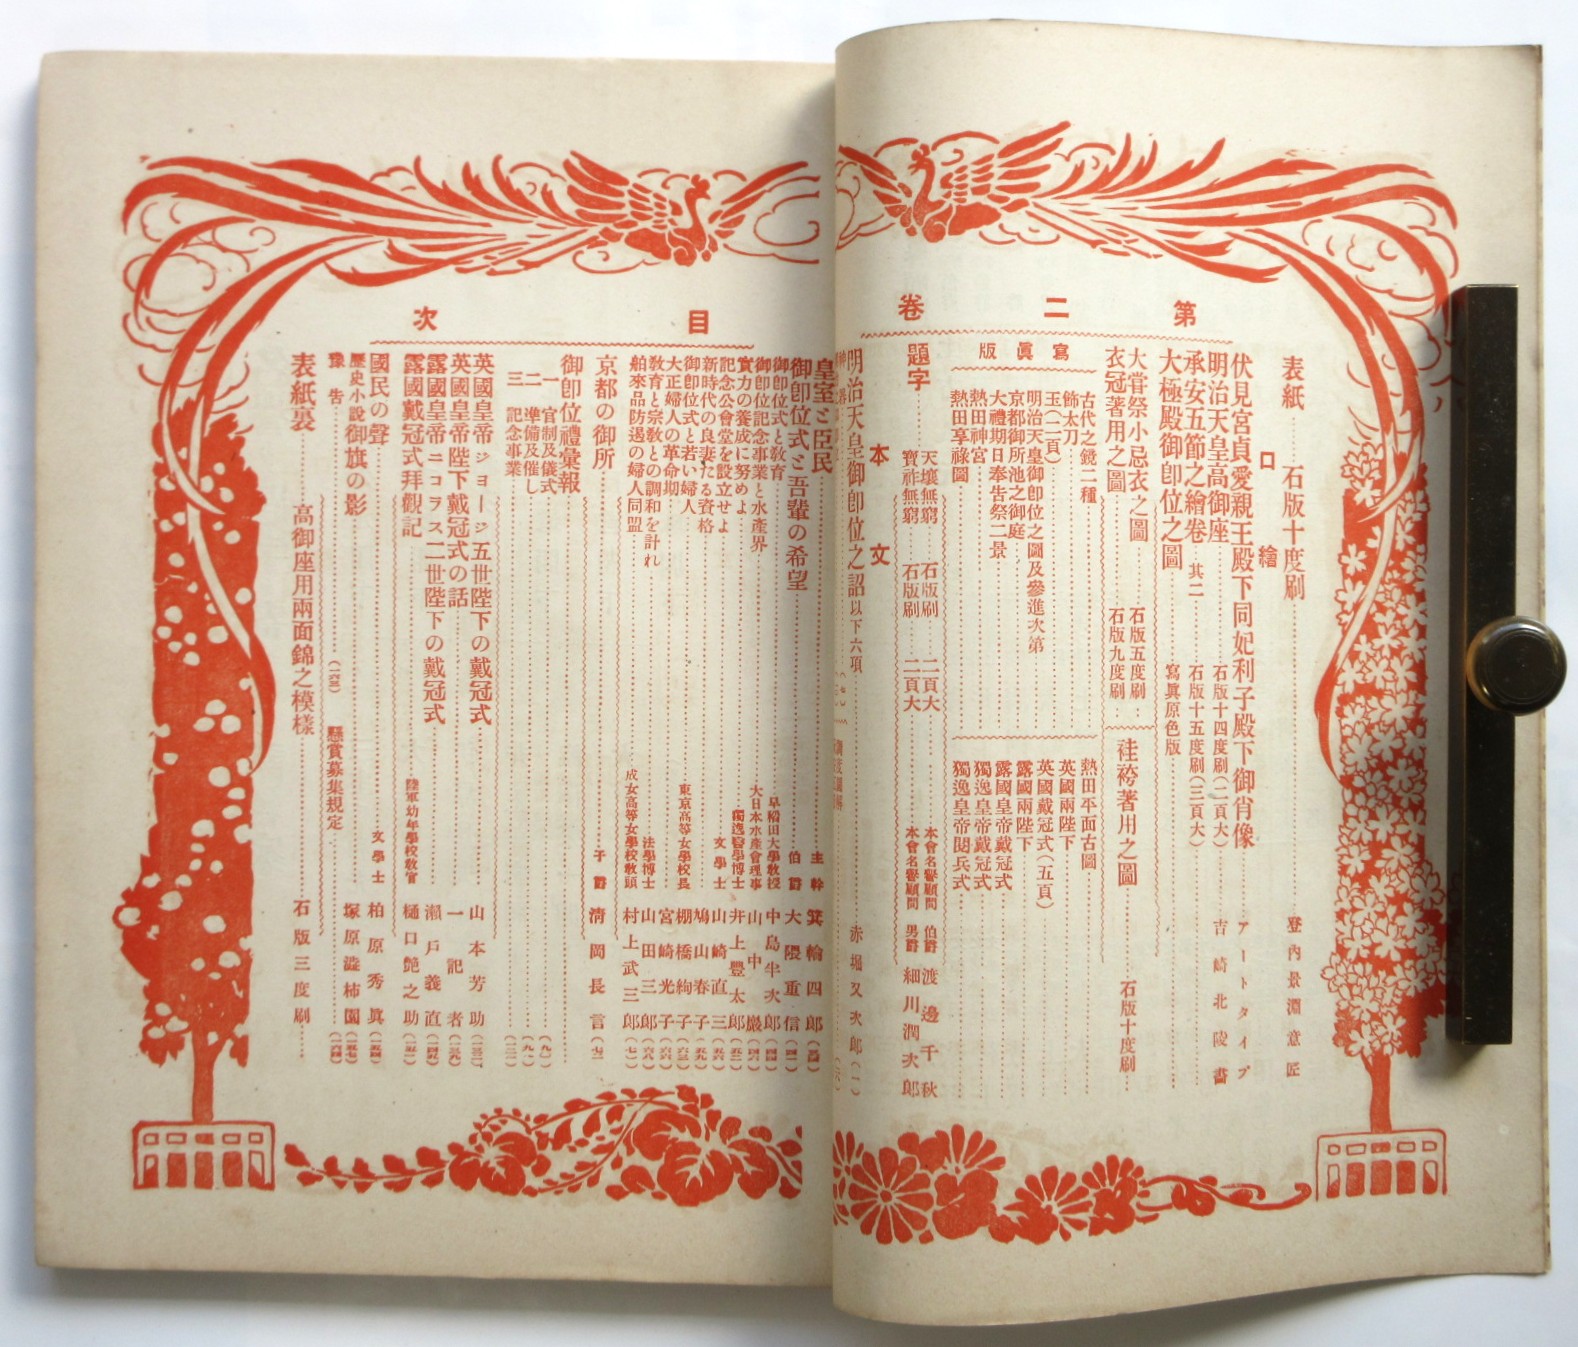 第二卷
目次
表紙 石版十度刷 登內景淵意匠
口繪
伏見宮貞愛親王殿下同妃利子殿下御肖像 アートタイプ
明治天皇高御座 石版十四度刷(二頁大) 吉崎北陵畵
承安五節之繪卷 其二 石版十五度刷(三頁大)
大極殿御卽位之圖 寫眞原色版
大嘗祭小忌衣之圖 石版五度刷
衣冠著用之圖 石版九度刷
袿袴著用之圖 石版十度刷
寫眞版
古代之鏡二種
飾太刀
玉(二頁)
明治天皇御卽位之圖及參進次第
京都御所池之御庭
大禮期日奉吿祭二景
熱田神宮
熱田享祿圖
熱田平面古圖
英國兩陛下
英國戴冠式(五頁)
露國兩陛下
露國皇帝戴冠式
獨逸皇帝戴冠式
獨逸皇帝閱兵式
題字
天壤無窮 石版刷 二頁大 本會名譽顧問 伯爵 渡邊千秋
寶祚無窮 石版刷 二頁大 本會名譽顧問 男爵 細川潤次郎
本文
明治天皇御卽位之詔 以下六項 赤堀又次郎(一)
皇室と臣民 主幹 箕輪四郎(三四)
御卽位式と吾輩の希望 伯爵 大隈重信(四一)
御卽位式と敎育 早稻田大學敎授 中島半次郎(四四)
御卽位記念事業と水產界 大日本水產會理事 山中巖(四六)
實力の養成に努めよ 獨逸醫學博士 井上豐太郎(五二)
記念公會堂を設立せよ 文學士 山崎直三(五六)
新時代の良妻たる資格 鳩山春子(五九)
御卽位式と若い婦人 東京高等女學校長 棚橋絢子(六三)
大正婦人の革命期 宮崎光子(六六)
敎育と宗敎との調和を計れ 法學博士 山田三郎(六八)
舶來品防遏の婦人同盟 成女高等女學校敎頭 村上武三郎(七一)
京都の御所 子爵 淸岡長言(七三)
御卽位禮彙報
一 官制及儀式(九一)
二 準備及催し(九二)
三 記念事業
英國皇帝ジョージ五世陛下の戴冠式 山本芳助
英國皇帝陛下戴冠式の話 一記者(一三九)
露國皇帝ニコラス二世陛下の戴冠式 瀨戶義直(一四五)
露國戴冠式拜觀記 陸軍幼年學校敎官 樋口艶之助(一五一)
國民の聲 文學士 柏原秀眞(一五四)
歷史小說 御旗の影 塚原澁柿園(一五七)
豫吿(一六三) 懸賞募集規定(一六四)
表紙裏 高御座用兩面錦之模樣 石版三度刷